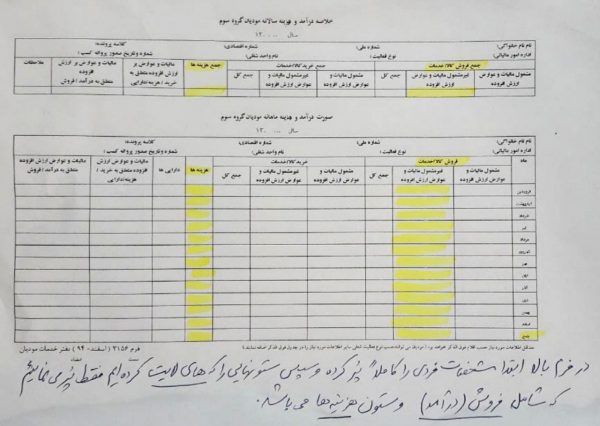 خلاصه درآمد و هزینه سالانه مودیان گروه سوم
سال ..... ۱۳۰۰
نام نام خانوادگی: شماره ملی: شماره اقتصادی: کلاسه پرونده:
اداره امور مالیاتی: نوع فعالیت: نام واحد شغلی: شماره وتاریخ صدور پروانه کسب:
جمع فروش کالا/خدمات جمع خرید کالا/خدمات جمع هزینه ها مالیات و عوارض بر ارزش افزوده متعلق به خرید / هزینه/دارایی مالیات و عوارض بر ارزش افزوده متعلق به درآمد / فروش ملاحظات
مشمول مالیات و عوارض ارزش افزوده غیرمشمول مالیات و عوارض ارزش افزوده جمع کل مشمول مالیات و عوارض ارزش افزوده غیرمشمول مالیات و عوارض ارزش افزوده جمع کل
صورت درآمد و هزینه ماهانه مودیان گروه سوم
سال ..... ۱۳۰
نام نام خانوادگی: شماره ملی: شماره اقتصادی: کلاسه پرونده:
اداره امور مالیاتی: نوع فعالیت: نام واحد شغلی: شماره وتاریخ صدور پروانه کسب:
ماه فروش کالا/خدمات خرید کالا/خدمات هزینه ها دارایی ها مالیات و عوارض ارزش افزوده متعلق به خرید / هزینه/دارایی مالیات و عوارض ارزش افزوده متعلق به درآمد / فروش
مشمول مالیات و عوارض ارزش افزوده غیرمشمول مالیات و عوارض ارزش افزوده جمع کل مشمول مالیات و عوارض ارزش افزوده غیرمشمول مالیات و عوارض ارزش افزوده جمع کل
فروردین
اردیبهشت
خرداد
تیر
مرداد
شهریور
مهر
آبان
آذر
دی
بهمن
اسفند
جمع
فرم ۳۱۵۶ (اسفند - ۹۴) دفتر خدمات مودیان
در فرم بالا ابتدا مشخصات فردی را کاملاً پر کرده و سپس ستونهایی را که های لایت کرده ایم فقط پر می نمائیم
که شامل فروش (درآمد) و ستون هزینه ها می باشد.